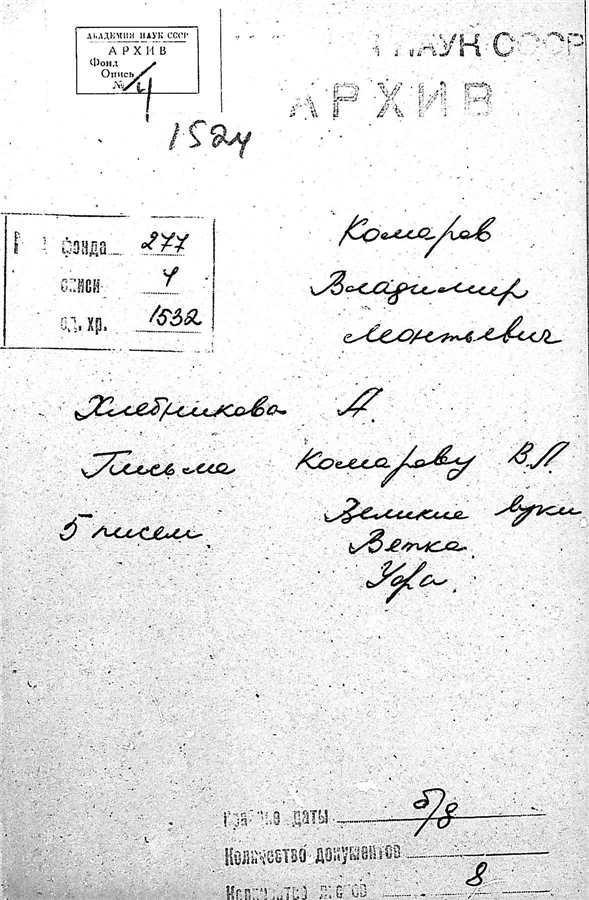 АКАДЕМИЯ НАУК СССР
АРХИВ
Фонд
Опись
№ 4
НАУК СССР
АРХИВ
1524
фонда 277
описи 4
ед. хр. 1532
Комаров
Владимир
Леонтьевич
Хлебникова А.
Письма Комарову В.Л.
5 писем. Великие Луки
Ветка.
Уфа.
Крайние даты б/д
Количество документов
Количество листов 8